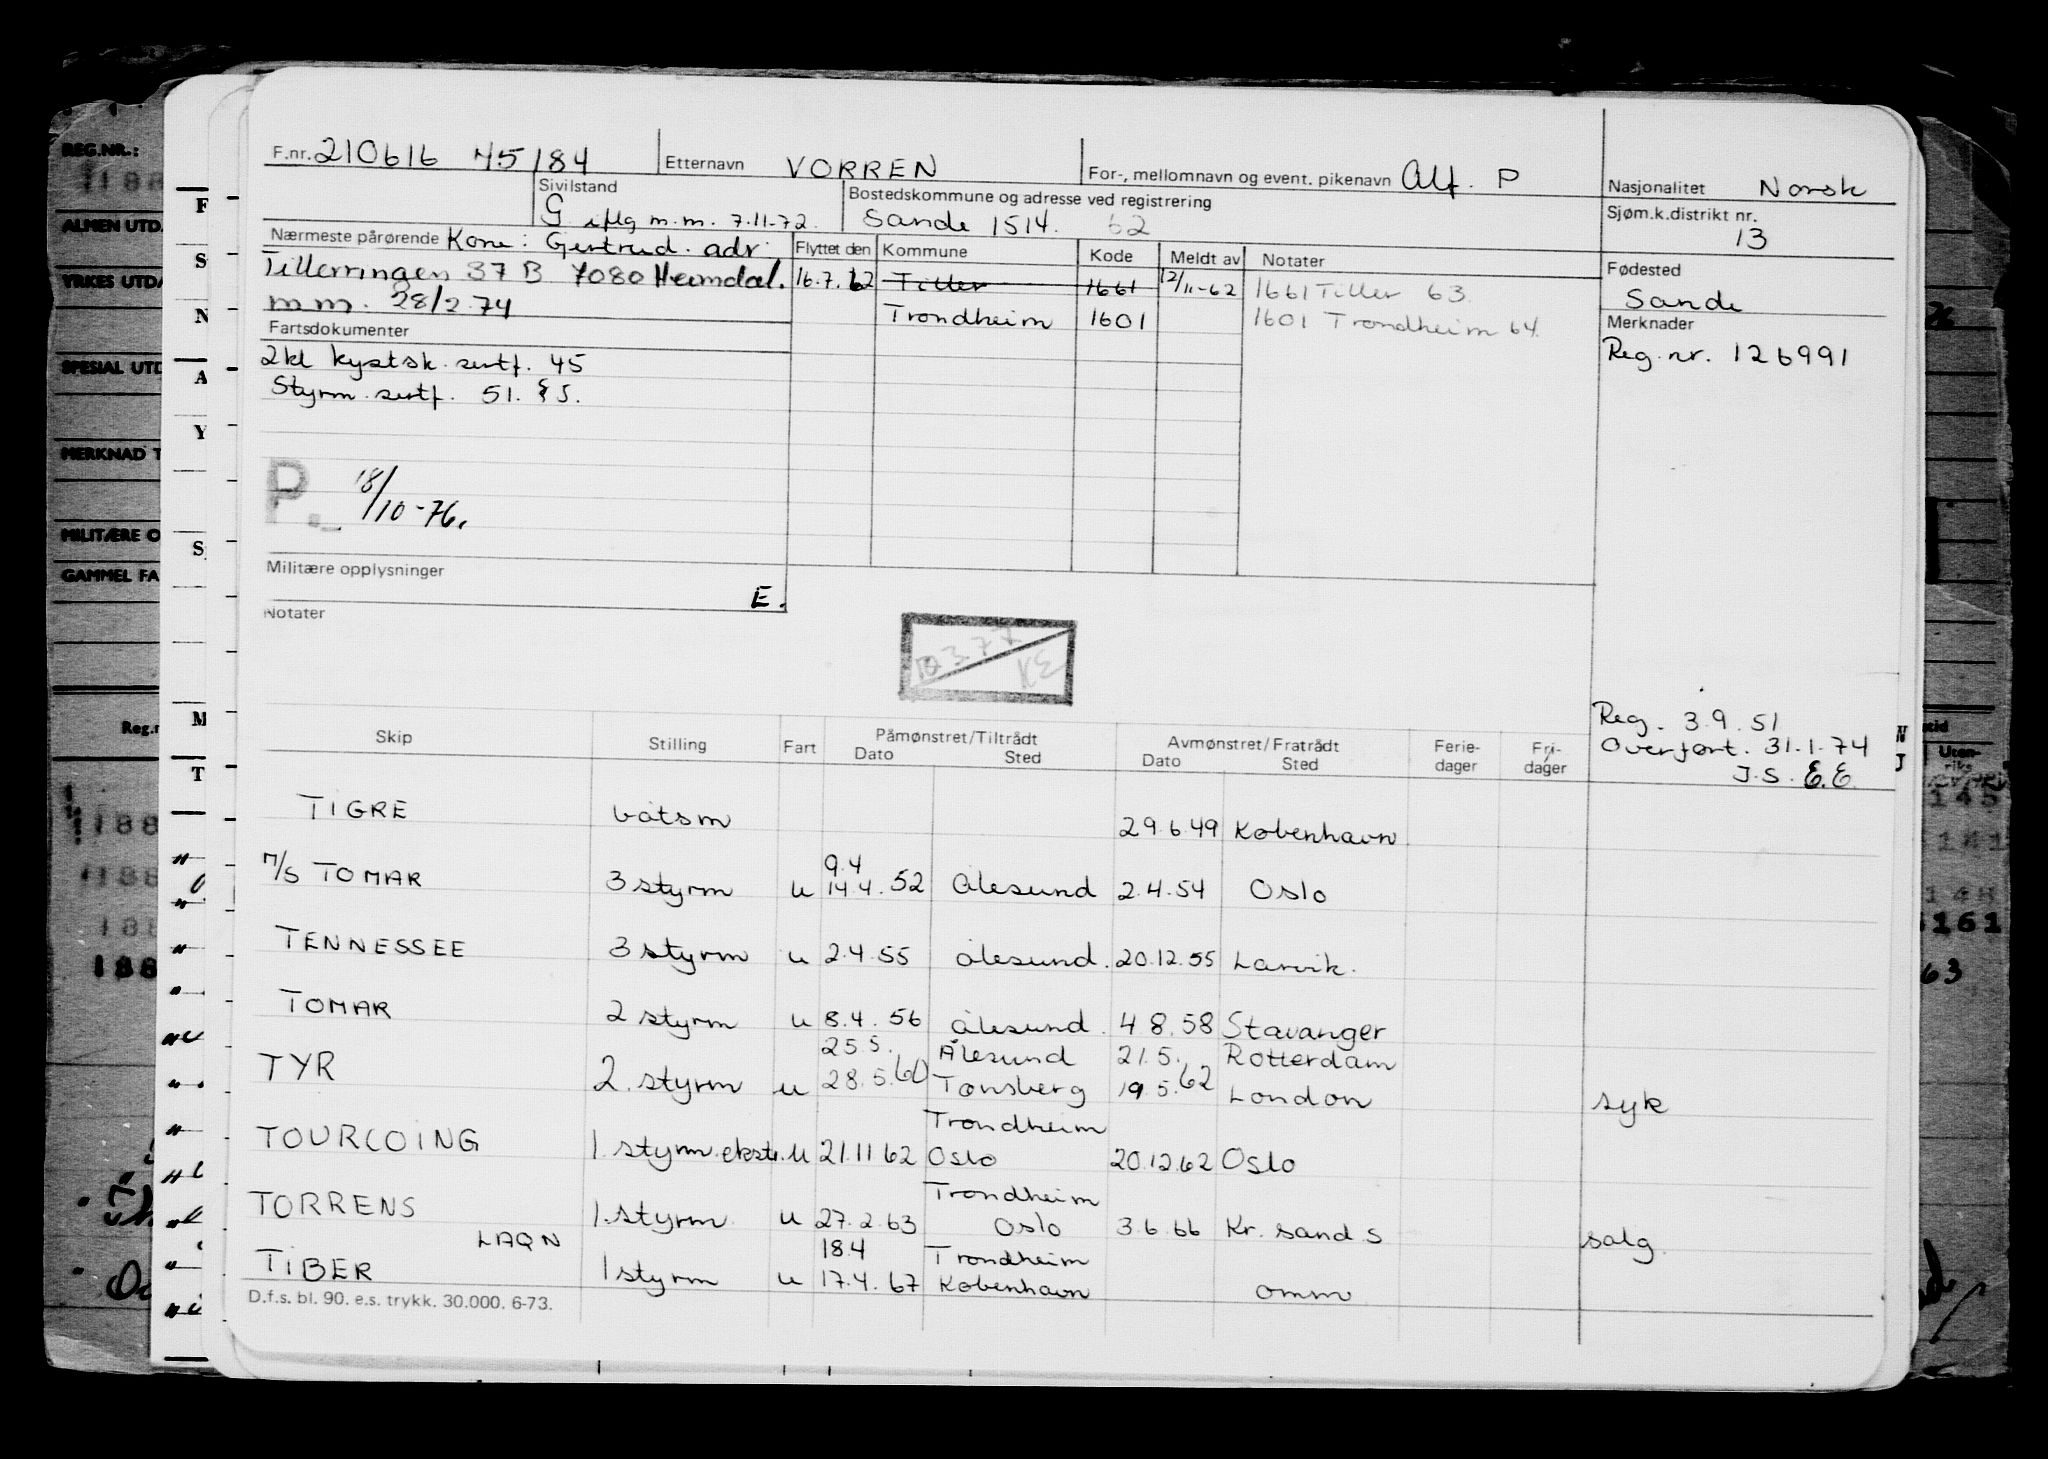 F.nr. 210616 45184 Etternavn VORREN For-, mellomnavn og event. pikenavn Alf. P Nasjonalitet Norsk
Sivilstand G iflg m.m. 7.11-72. Bostedskommune og adresse ved registrering Sande 1514. 62 Sjøm.k.distrikt nr. 13
Nærmeste pårørende Kone: Gertrud. adr: Flyttet den Kommune Kode Meldt av Notater Fødested
Tillerringen 37 B 7080 Heimdal. 16.7.62 Tiller 1661 12/11-62 1661 Tiller 63 Sande
m.m. 28/2.74 Trondheim 1601 1601 Trondheim 64. Merknader
Fartsdokumenter Reg.nr. 126991
2kl kystsk. sertf. 45
Styrm. sertf. 51. § 5.
P. 18/10-76.
Militære opplysninger E.
Notater
10 3.77 KE
Reg. 3.9.51
Overført. 31.1.74
J.S. E.E.
Skip Stilling Fart Påmønstret/Tiltrådt Avmønstret/Fratrådt Ferie- Fri-
Dato Sted Dato Sted dager dager
TIGRE båtsm 29.6.49 København
9.4
M/S TOMAR 3 styrm u 14.4.52 Ålesund 2.4.54 Oslo
TENNESSEE 3 styrm u 2.4.55 Ålesund. 20.12.55 Larvik.
TOMAR 2 styrm u 8.4.56 Ålesund. 4.8.58 Stavanger
25.5. Ålesund 21.5. Rotterdam
TYR 2. styrm u 28.5.60 Tønsberg 19.5.62 London syk
Trondheim
TOURCOING 1. styrm.ekstr. u 21.11 62 Oslo 20.12.62 Oslo
Trondheim
TORRENS 1. styrm u 27.2.63 Oslo 3.6.66 Kr. sand S salg.
LAQN 18.4 Trondheim
TIBER 1 styrm u 17.4.67 København omm
D.f.s. bl. 90. e.s. trykk. 30.000. 6-73.
REG.NR.:
ALMEN UTD.
YRKES UTDA
SPESIAL UTD
MERKNAD T
MILITÆRE O
GAMMEL FA
Reg.n
F
S
N
A
Y
S
M
T